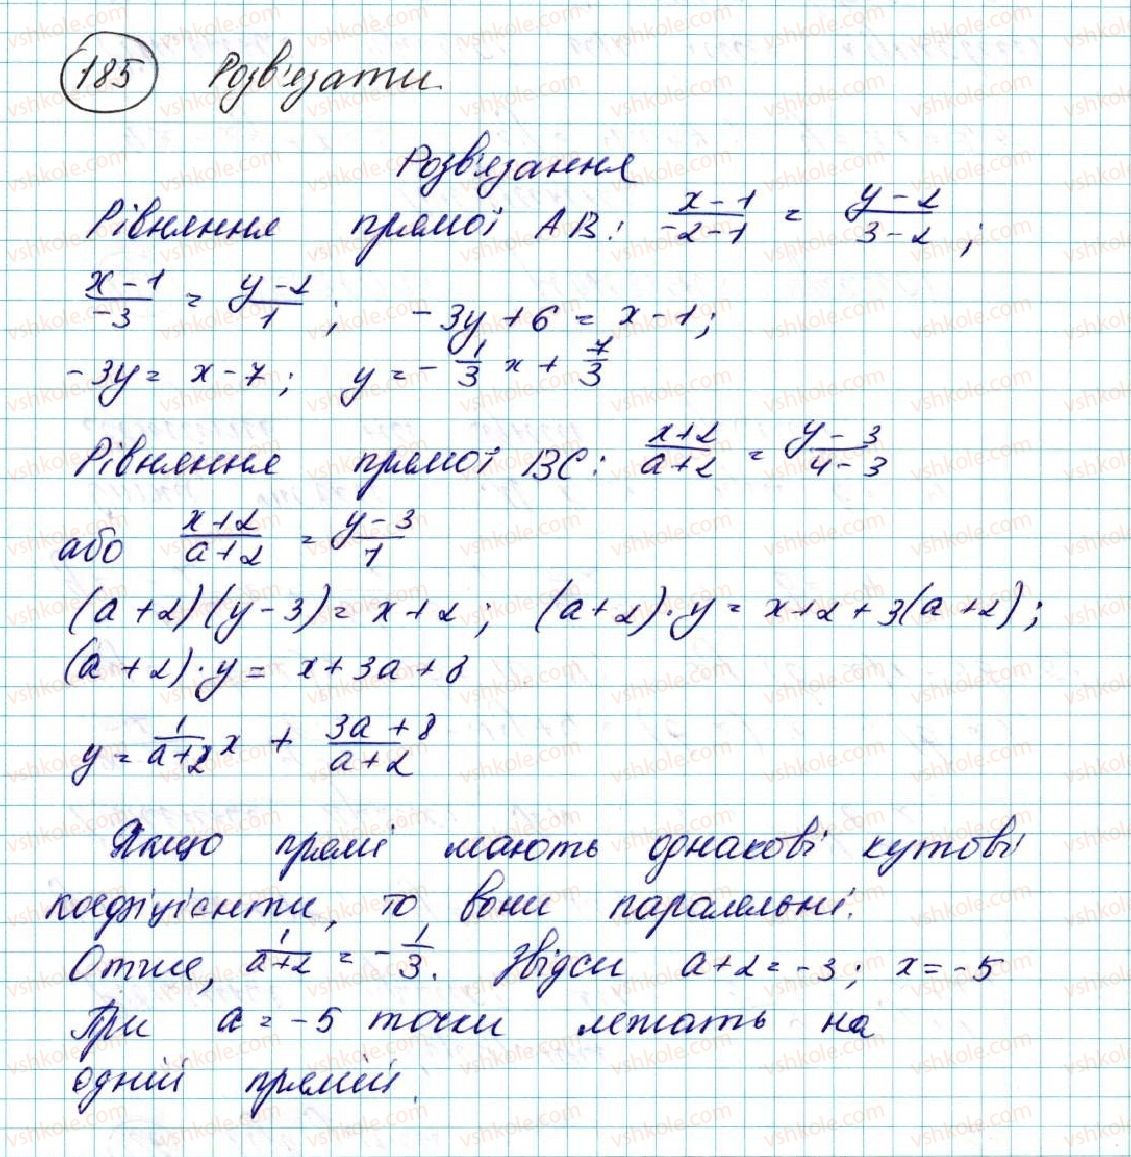 185 Розв'язати.
Розв'язання
Рівняння прямої AB: (x-1)/(-2-1) = (y-2)/(3-2);
(x-1)/(-3) = (y-2)/1; -3y+6 = x-1;
-3y = x-7; y = -1/3 x + 7/3
Рівняння прямої BC: (x+2)/(a+2) = (y-3)/(4-3)
або (x+2)/(a+2) = (y-3)/1
(a+2)(y-3) = x+2; (a+2)·y = x+2+3(a+2);
(a+2)·y = x+3a+8
y = 1/(a+2) x + (3a+8)/(a+2)
Якщо прямі мають однакові кутові
коефіцієнти, то вони паралельні.
Отже, 1/(a+2) = -1/3. Звідси a+2 = -3; x = -5
При a = -5 точки лежать на
одній прямій.